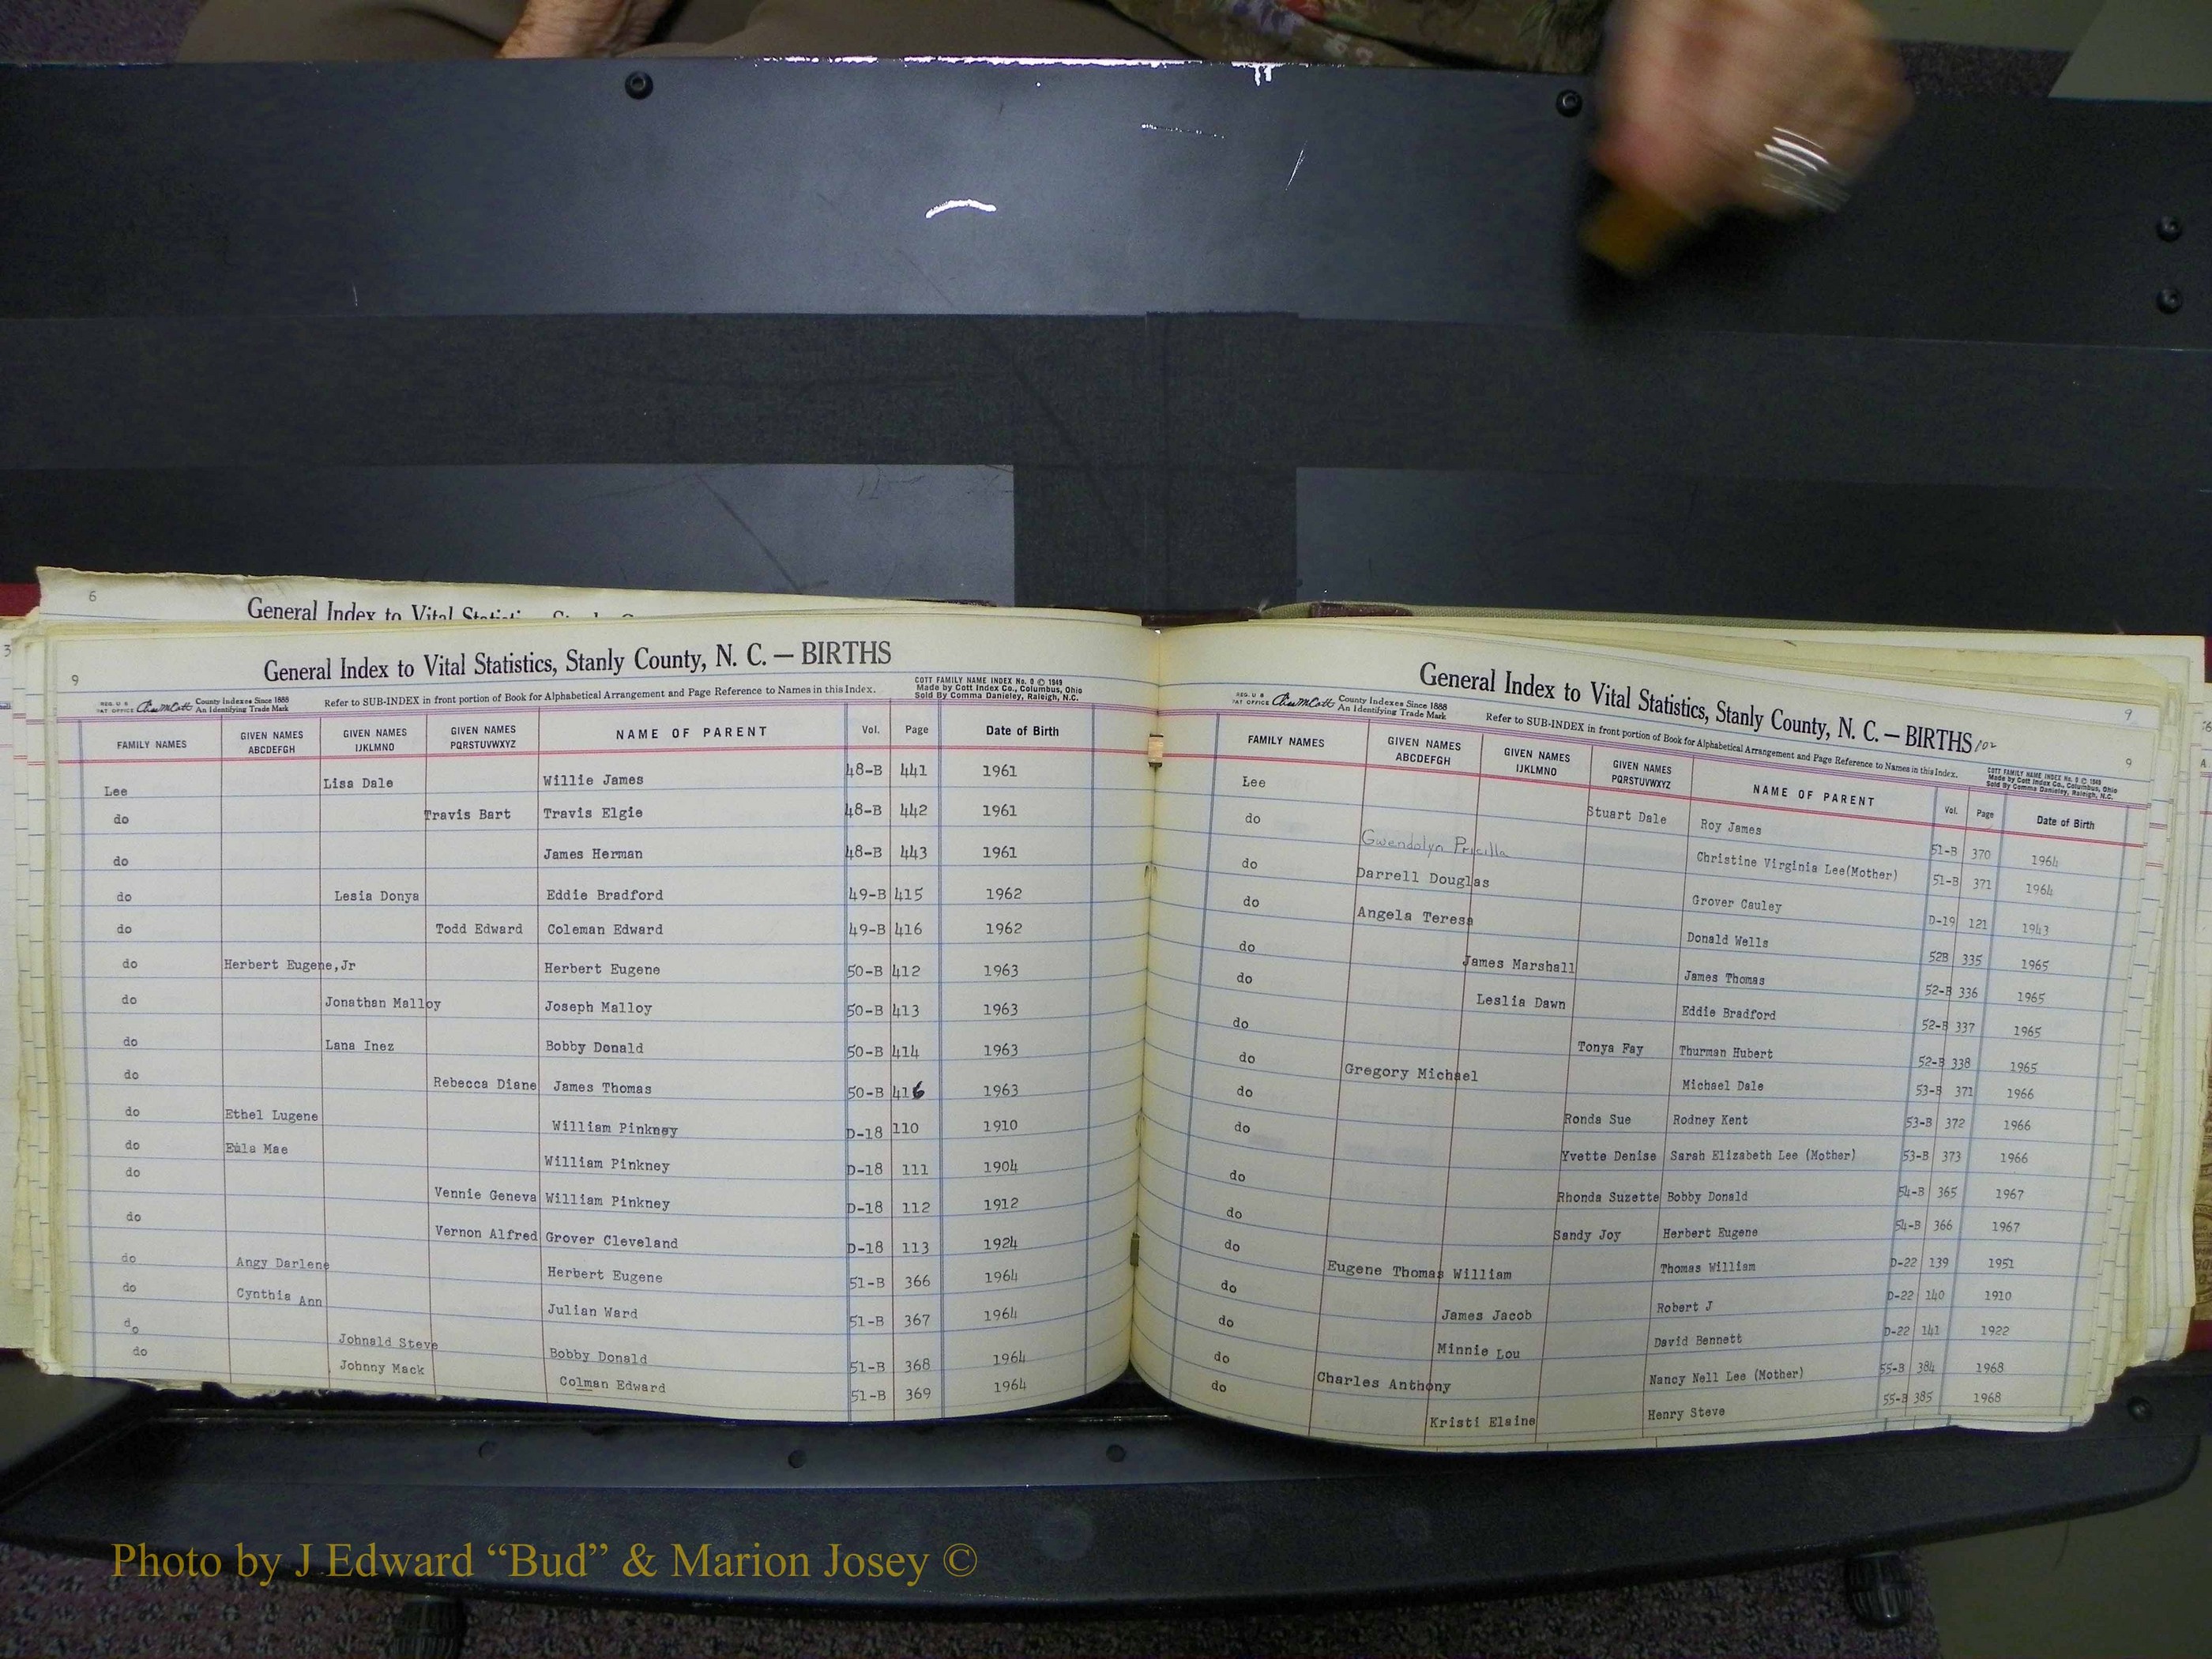 6
General Index to Vital
3
General Index to Vital Statistics, Stanly County, N. C. — BIRTHS
9
REG. U S PAT OFFICE County Indexes Since 1888 An Identifying Trade Mark
Refer to SUB-INDEX in front portion of Book for Alphabetical Arrangement and Page Reference to Names in this Index.
COTT FAMILY NAME INDEX No. 0 © 1949
Made by Cott Index Co., Columbus, Ohio
Sold By Comma Danieley, Raleigh, N.C.
FAMILY NAMES GIVEN NAMES ABCDEFGH GIVEN NAMES IJKLMNO GIVEN NAMES PQRSTUVWXYZ NAME OF PARENT Vol. Page Date of Birth
Lee Lisa Dale Willie James 48-B 441 1961
do Travis Bart Travis Elgie 48-B 442 1961
do James Herman 48-B 443 1961
do Lesia Donya Eddie Bradford 49-B 415 1962
do Todd Edward Coleman Edward 49-B 416 1962
do Herbert Eugene,Jr Herbert Eugene 50-B 412 1963
do Jonathan Malloy Joseph Malloy 50-B 413 1963
do Lana Inez Bobby Donald 50-B 414 1963
do Rebecca Diane James Thomas 50-B 416 1963
do Ethel Lugene William Pinkney D-18 110 1910
do Eula Mae William Pinkney D-18 111 1904
do Vennie Geneva William Pinkney D-18 112 1912
do Vernon Alfred Grover Cleveland D-18 113 1924
do Angy Darlene Herbert Eugene 51-B 366 1964
do Cynthia Ann Julian Ward 51-B 367 1964
do Johnald Steve Bobby Donald 51-B 368 1964
do Johnny Mack Colman Edward 51-B 369 1964
General Index to Vital Statistics, Stanly County, N. C. — BIRTHS 102
9
9
REG. U S PAT OFFICE County Indexes Since 1888 An Identifying Trade Mark
Refer to SUB-INDEX in front portion of Book for Alphabetical Arrangement and Page Reference to Names in this Index.
COTT FAMILY NAME INDEX No. 0 © 1949
Made by Cott Index Co., Columbus, Ohio
Sold By Comma Danieley, Raleigh, N.C.
FAMILY NAMES GIVEN NAMES ABCDEFGH GIVEN NAMES IJKLMNO GIVEN NAMES PQRSTUVWXYZ NAME OF PARENT Vol. Page Date of Birth
Lee Stuart Dale Roy James 51-B 370 1964
do Gwendolyn Priscilla Christine Virginia Lee(Mother) 51-B 371 1964
do Darrell Douglas Grover Cauley D-19 121 1943
do Angela Teresa Donald Wells 52B 335 1965
do James Marshall James Thomas 52-B 336 1965
do Leslia Dawn Eddie Bradford 52-B 337 1965
do Tonya Fay Thurman Hubert 52-B 338 1965
do Gregory Michael Michael Dale 53-B 371 1966
do Ronda Sue Rodney Kent 53-B 372 1966
do Yvette Denise Sarah Elizabeth Lee (Mother) 53-B 373 1966
do Rhonda Suzette Bobby Donald 54-B 365 1967
do Sandy Joy Herbert Eugene 54-B 366 1967
do Eugene Thomas William Thomas William D-22 139 1951
do James Jacob Robert J D-22 140 1910
do Minnie Lou David Bennett D-22 141 1922
do Charles Anthony Nancy Nell Lee (Mother) 55-B 384 1968
do Kristi Elaine Henry Steve 55-B 385 1968
Photo by J Edward “Bud” & Marion Josey ©